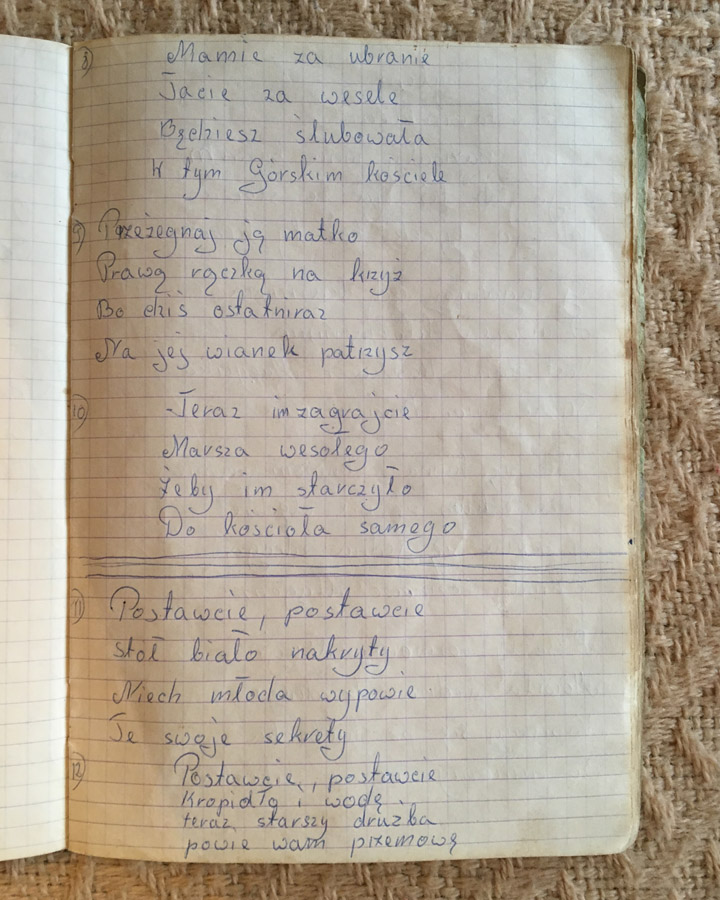 8) Mamie za ubranie
Tacie za wesele
Będziesz ślubowała
W tym Górskim kościele
9) Przeżegnaj ją matko
Prawą rączką na krzyż
Bo dziś ostatniraz
Na jej wianek patrzysz
10) Teraz im zagrajcie
Marsza wesołego
Żeby im starczyło
Do kościoła samego
11) Postawcie, postawcie
stoł biało nakryty
Niech młoda wypowie
Te swoje sekrety
12) Postawcie, postawcie
Kropidło i wodę
teraz starszy drużba
powie wam przemowę